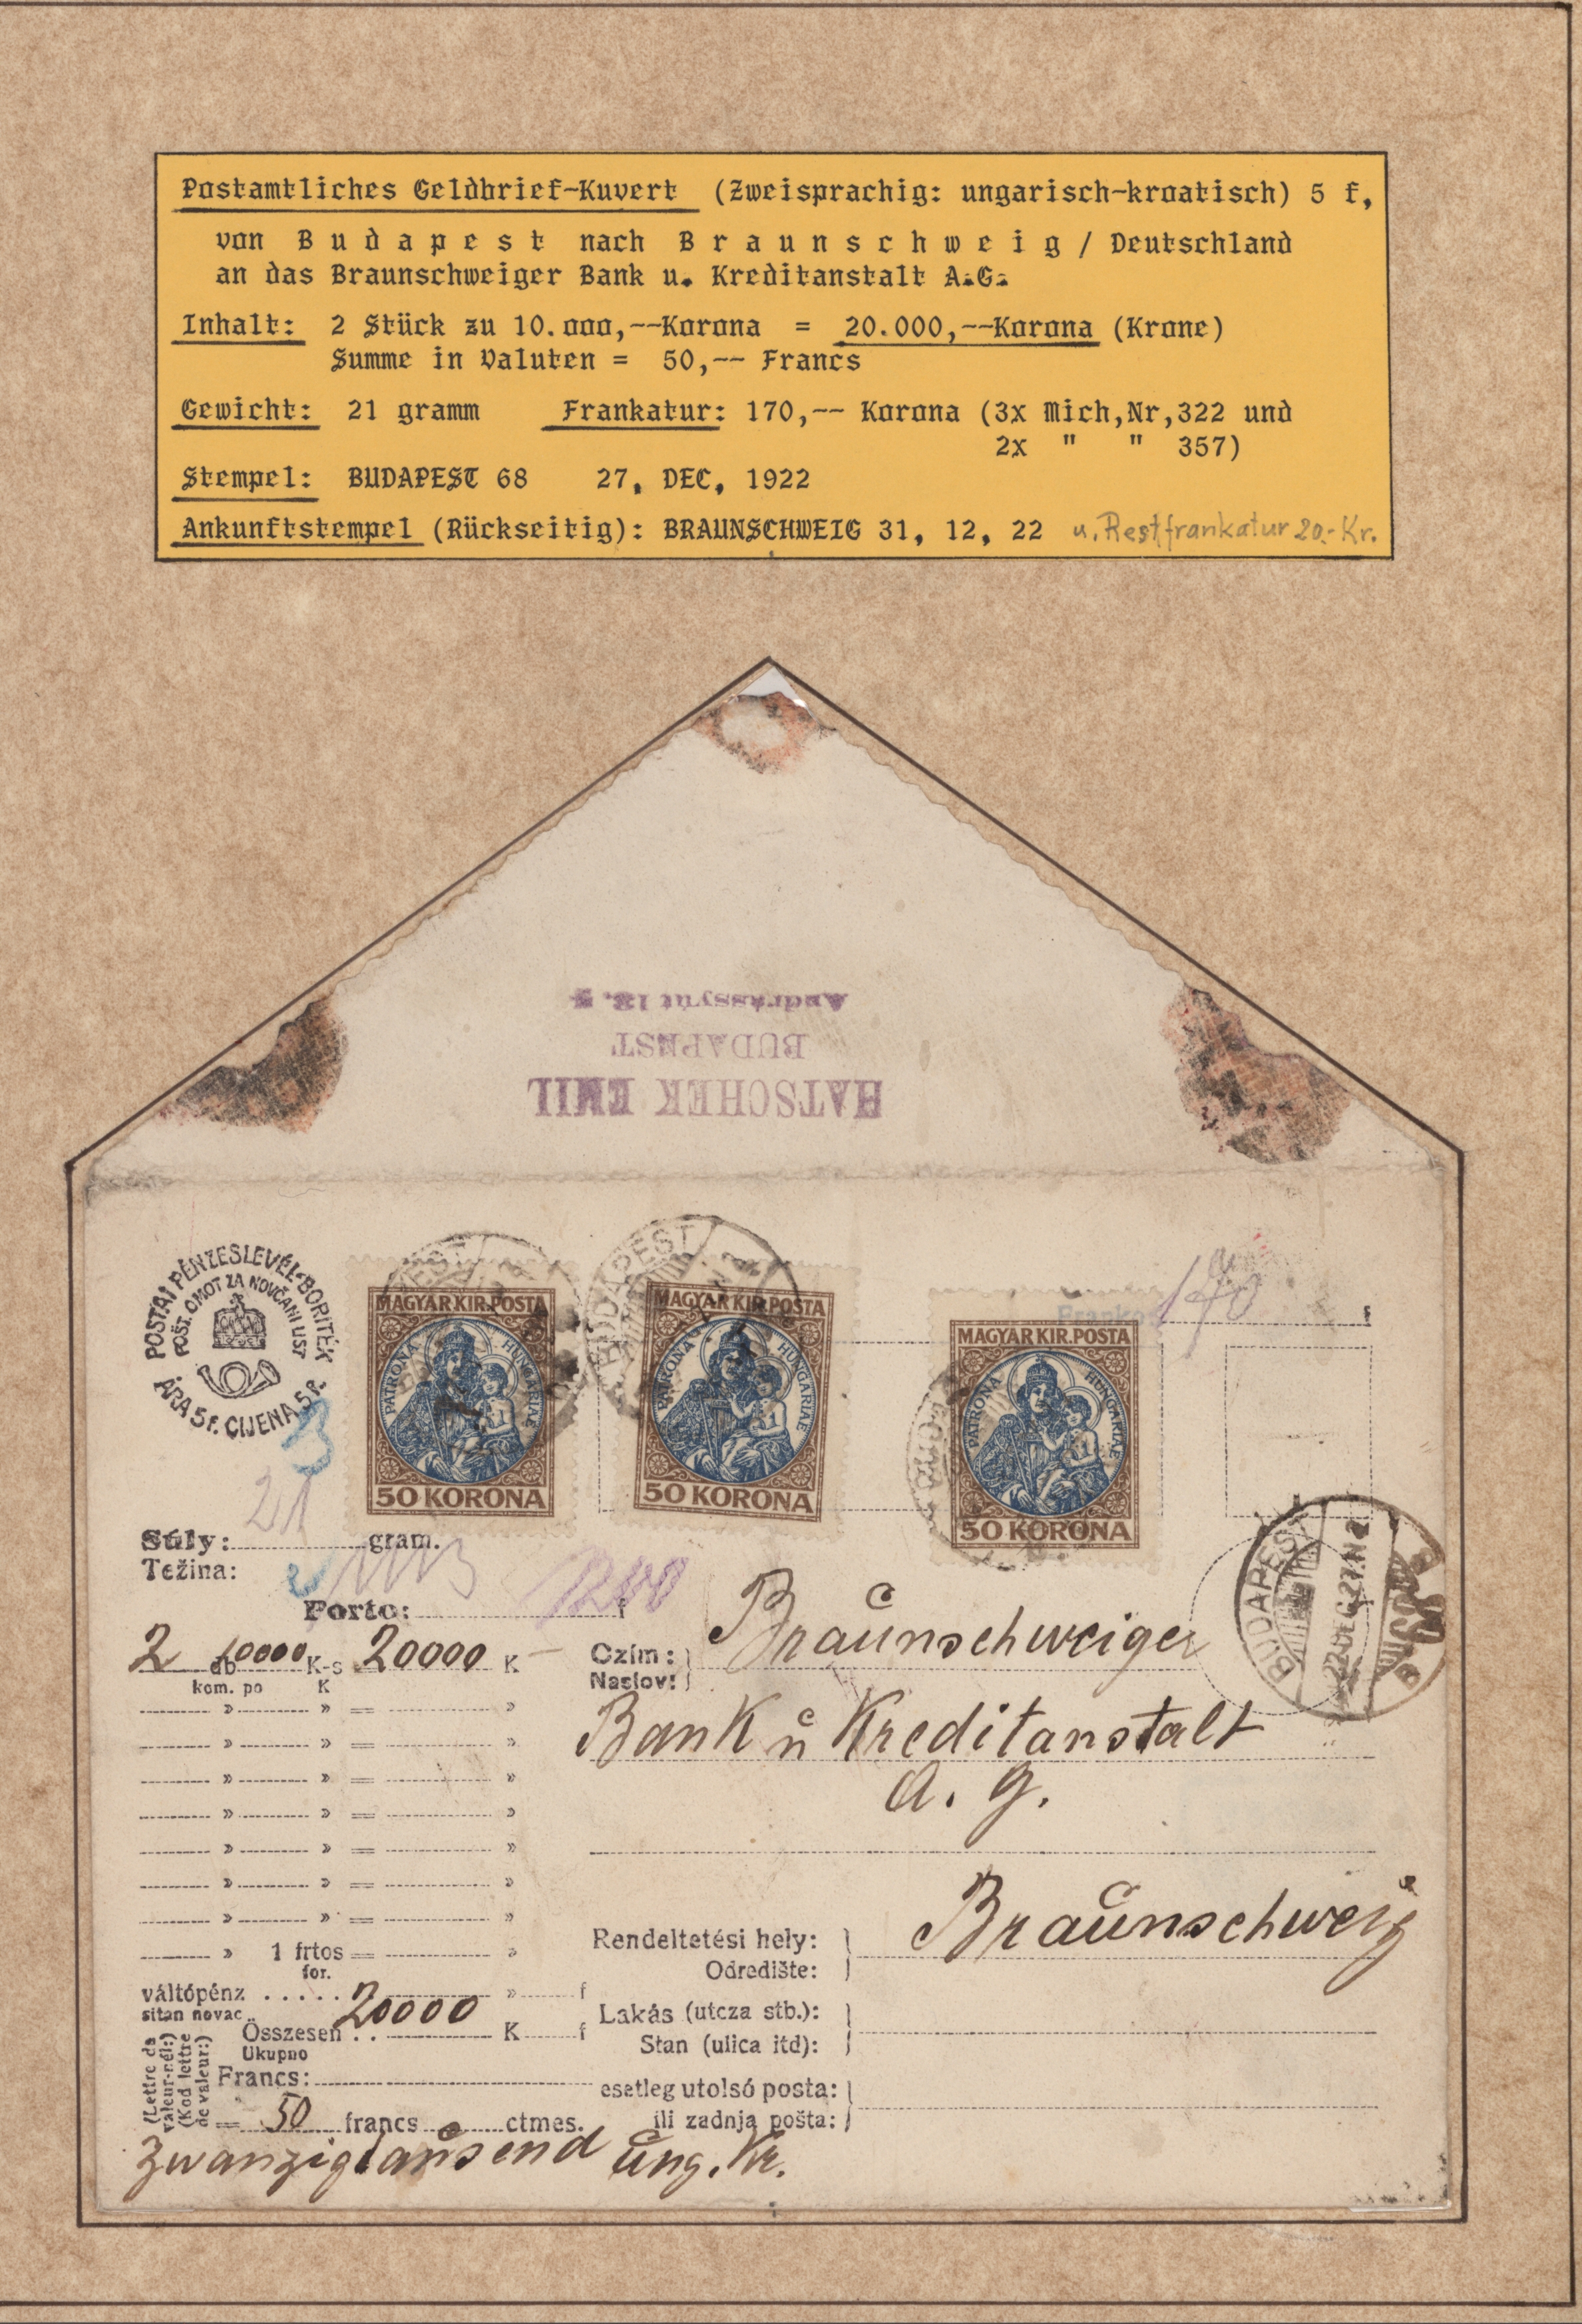 Postamtliches Geldbrief-Kuvert (Zweisprachig: ungarisch-kroatisch) 5 f,
von Budapest nach Braunschweig / Deutschland
an das Braunschweiger Bank u. Kreditanstalt A.G.
Inhalt: 2 Stück zu 10.000,--Korona = 20.000,--Korona (Krone)
Summe in Valuten = 50,-- Francs
Gewicht: 21 gramm Frankatur: 170,-- Korona (3x Mich,Nr,322 und
2x " " 357)
Stempel: BUDAPEST 68 27, DEC, 1922
Ankunftstempel (Rückseitig): BRAUNSCHWEIG 31, 12, 22 u. Restfrankatur 20.- Kr.
Andrássy út 13.
BUDAPEST
HATSCHEK EMIL
POSTAI PÉNZESLEVÉL-BORITÉK
POŠT. OMOT ZA NOVČANI LIST
ÁRA 5 f. CIJENA 5 f.
BUDAPEST
MAGYAR KIR. POSTA
PATRONA HUNGARIAE
50 KORONA
BUDAPEST
MAGYAR KIR. POSTA
PATRONA HUNGARIAE
50 KORONA
Franko 170 f
MAGYAR KIR. POSTA
PATRONA HUNGARIAE
50 KORONA
BUDAPEST
922 DEC. 27. N 2
Súly: 21 gram.
Težina:
Porto: f
2 db 10000 K-s 20000 K
kom. po K
» » = »
» » = »
» » = »
» » = »
» » = »
» » = »
» » = »
» 1 frtos = »
for.
váltópénz ..... » f
sitan novac
Összesen .. 20000 K f
Ukupno
(Lettre de valeur-nél:)
(Kod lettre de valeur:)
Francs:
= 50 francs ctmes.
Zwanzigtausend ung. Kr.
Czím: Braunschweiger
Naslov:
Bank u Kreditanstalt
A. G.
Rendeltetési hely: Braunschweig
Odredište:
Lakás (utcza stb.):
Stan (ulica itd):
esetleg utolsó posta:
ili zadnja pošta: